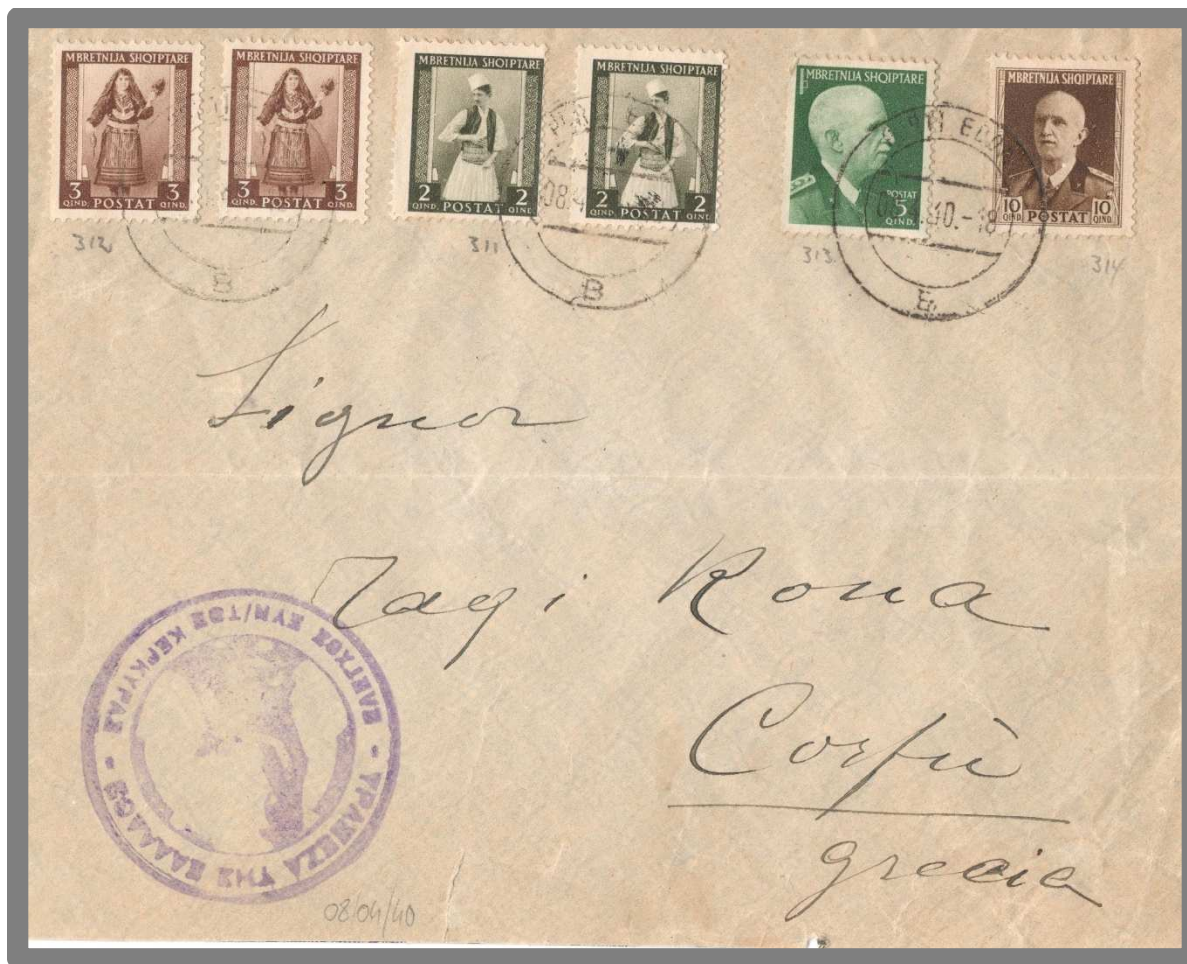 MBRETNIJA SHQIPTARE
3 QIND. POSTAT 3 QIND.
MBRETNIJA SHQIPTARE
3 QIND. POSTAT 3 QIND.
MBRETNIJA SHQIPTARE
2 QIND. POSTAT 2 QIND.
MBRETNIJA SHQIPTARE
2 QIND. POSTAT 2 QIND.
MBRETNIJA SHQIPTARE
POSTAT
5
QIND.
MBRETNIJA SHQIPTARE
10 QIND. POSTAT 10 QIND.
40.-18
B
B
312
311
313
314
Signor
Kona
Corfù
grecia
ΤΡΑΠΕΖΑ ΤΗΣ ΕΛΛΑΔΟΣ
ΕΛΕΓΧΟΣ ΣΥΝ/ΤΟΣ ΚΕΡΚΥΡΑΣ
08/04/40